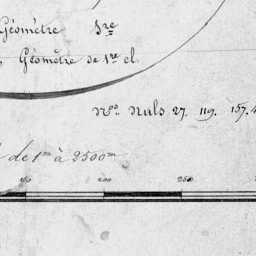 Géomètre 1re
Géomètre de 1re cl.
Nos. Nuls 27. 119. 157.
de 1m à 2500m
200 250